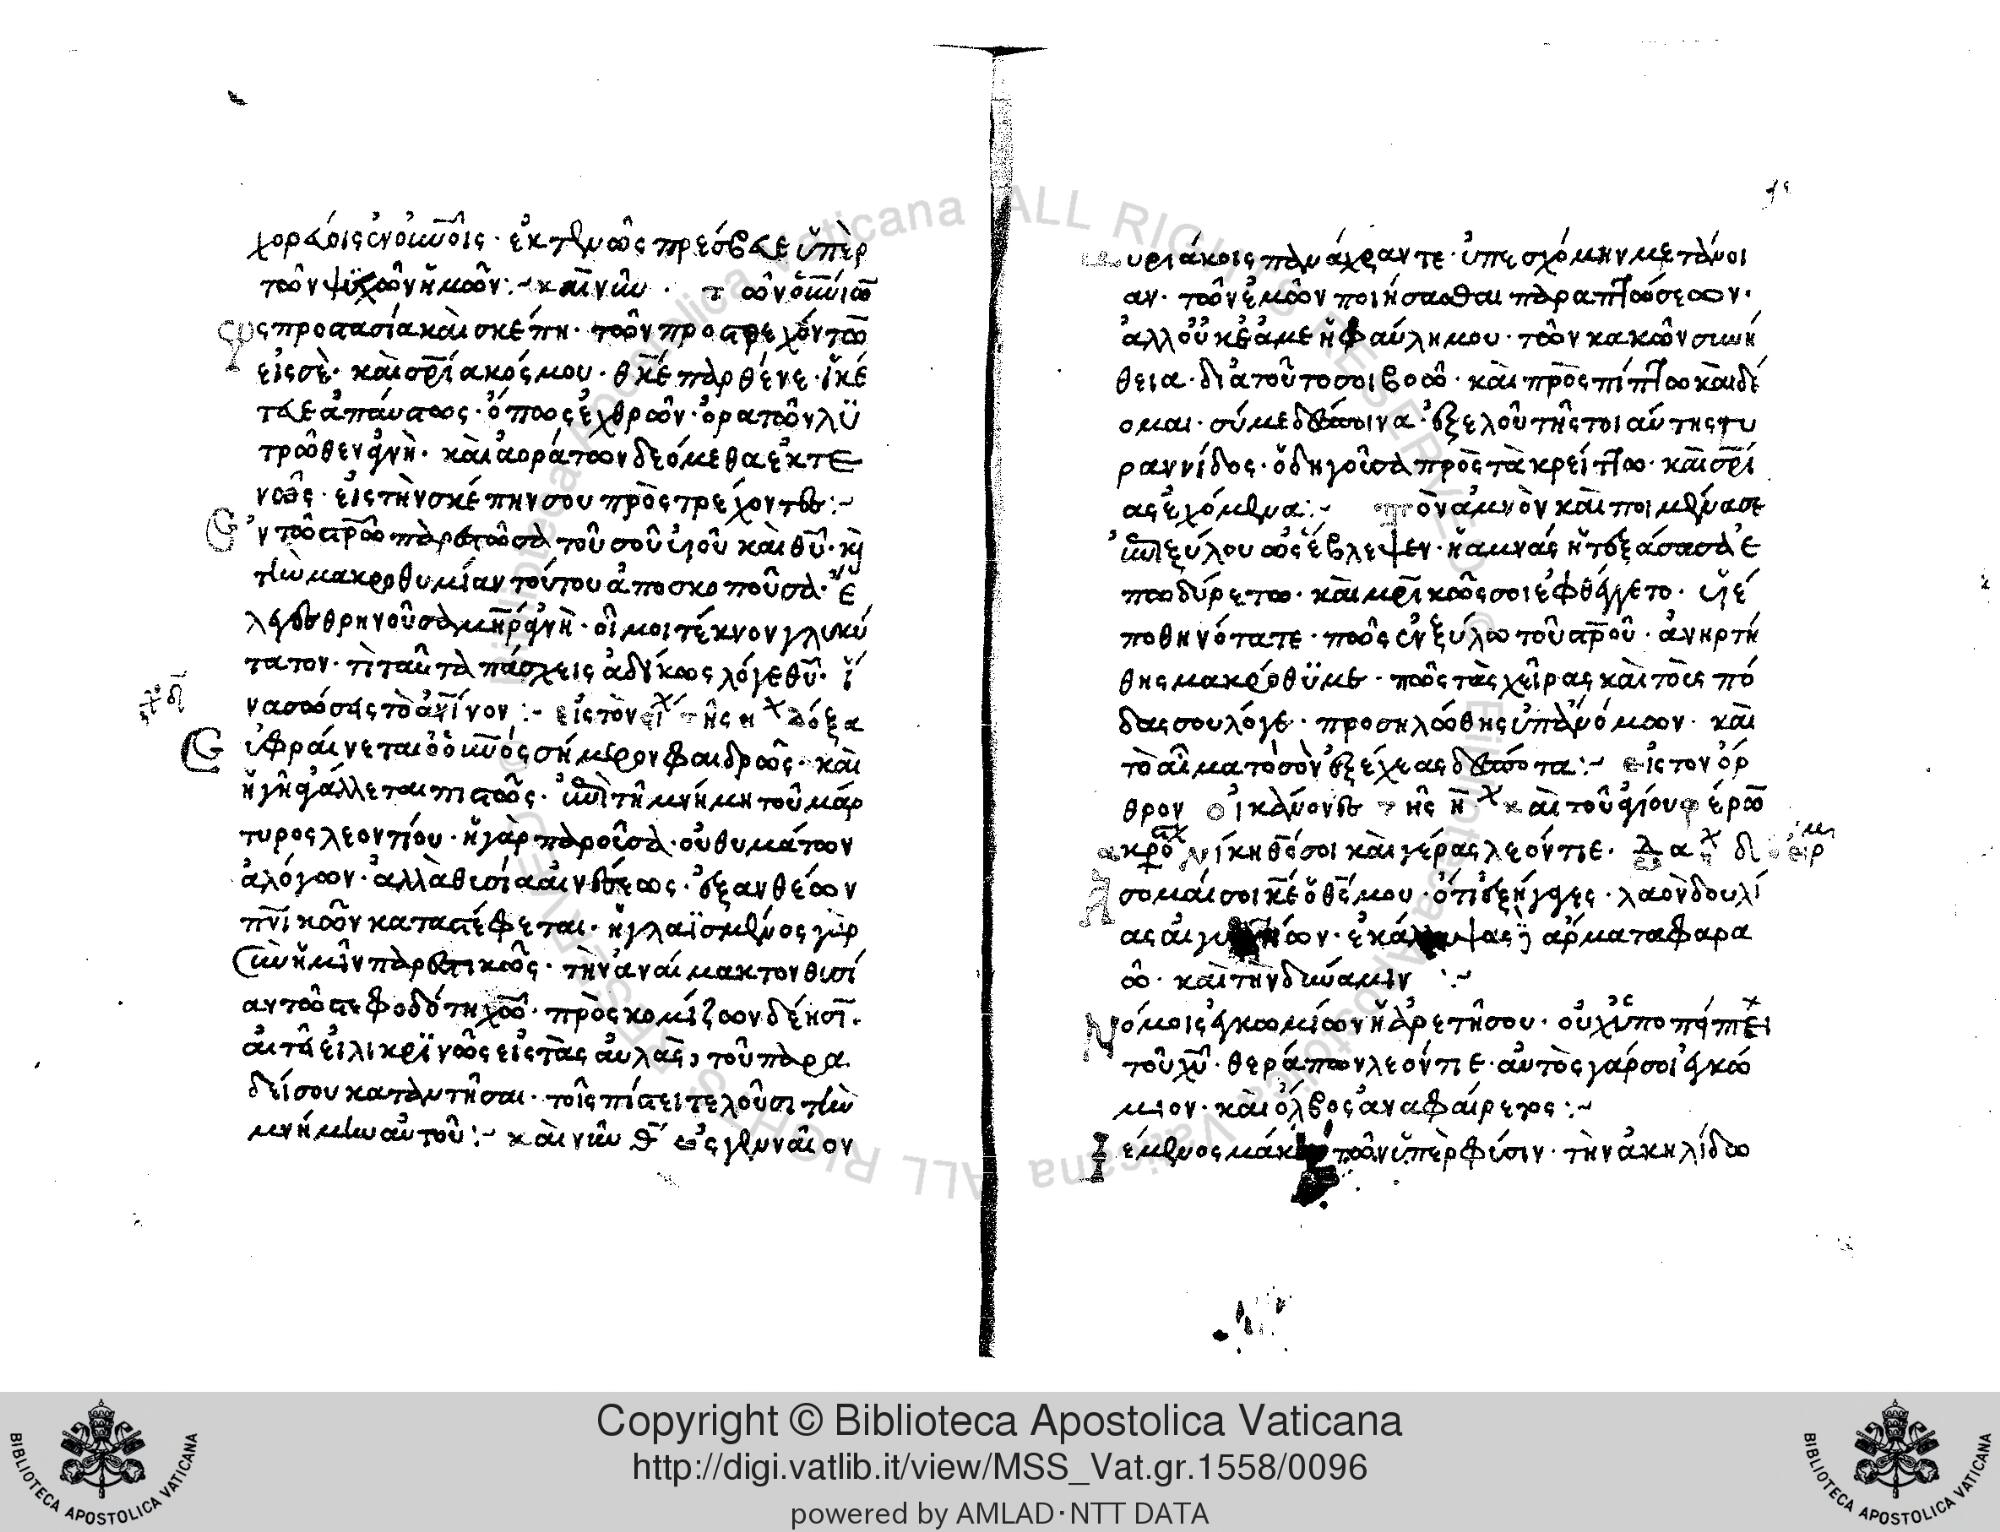 χορδοῖς ἐν οἰκῦοῖς· ἐκτενῶς πρέσβευε ὑπὲρ
τῶν ψυχῶν ἡμῶν:~ καὶ νῦν · τῶν οὐνίων
ς προστασία καὶ σκέπη· τῶν προστρεχόντων
εἰς σὲ· καὶ σρία κόσμου· θκε παρθένε· ἱκέ
τευε ἀπαύστως· ὅπως ἐχθρῶν· ὁρατῶν λυ
τρωθεν ἁγνὴ· καὶ ἀοράτων δεόμεθα ἐκτε
νῶς· εἰς τὴν σκέπην σου προστρέχοντες:~
Ἐν τῶ στρῶ παρεστῶσα τοῦ σοῦ υἱοῦ καὶ θῦ· κ
τὴν μακροθυμίαν τούτου ἀποσκοποῦσα· ἔ
λεγες θρηνοῦσα μηρ ἁγνὴ· οἴμοι τέκνον γλυκύ
τατον· τί ταῦτα πάσχεις ἀδίκως λόγε θῦ· ἵ
να σώσης τὸ ἀνίνον:~ εἰς τὸν στίχ τῆς η χ δόξα
Εὐφραίνεται ὁ οὐνός σήμερον φαιδρῶς· καὶ
ἡ γῆ ἀγάλλεται πιστῶς· ἐπὶ τῆ μνήμη τοῦ μάρ
τυρος λεοντίου· ἡ γὰρ παροῦσα· οὐ θυμάτων
ἀλόγων· ἀλλὰ θυσία αἰνέσεως· ἐξ ἀνθέων
πνικῶν καταστέφεται· ἠγλαϊσμένος γὰρ
σὺν ἡμῖν παρεστικῶς· τὴν ἀναίμακτον θυσί
αν τῶ στεφοδότη χῶ· προσκομίζων δέησι·
αἰτεῖ εἰλικρϊνῶς εἰς τὰς αὐλὰς τοῦ παρα
δείσου καταντῆσαι· τοῖς πίστει τελοῦσι τὴν
μνήμην αὐτοῦ:~ καὶ νῦν θ ὡς γενναῖον
μυριάκοις πανάχραντε· ὑπεσχόμην μετάνοι
αν· τῶν ἐμῶν ποιήσασθαι παραπτώσεων·
ἀλλ' οὐκ ἐᾶ με ἡ φαύλη μου· τῶν κακῶν συνή
θεια· διὰ τοῦτο σοι βοῶ· καὶ προσπίπτω καὶ δέ
ομαι· σύ με δέσποινα· ἐξελοῦ τῆς τοιαύτης τυ
ραννίδος· ὁδηγοῦσα πρὸς τὰ κρείττω· καὶ σρί
ας ἐχόμενα:~ τὸν ἀμνὸν καὶ ποιμένα σε
ἐπὶ ξύλου ὡς ἔβλεψεν· ἡ ἀμνάς ἡ τέξασα σὲ ἐ
πωδύρετο· καὶ μρικῶς σοι ἐφθέγγετο· υἱὲ
ποθηνότατε· πῶς ἐν ξύλω τοῦ στροῦ· ἀνηρτή
θης μακρόθϋμε· πῶς τὰς χεῖρας καὶ τοὺς πό
δας σου λόγε· προσηλώθης ὑπ' ἀνόμων· καὶ
τὸ αἷμα τὸ σὸν ἐξέχεας δέσποτα:~ εἰς τὸν ὄρ
θρον οἱ κανόνες τῆς η χ καὶ τοῦ ἁγίου φέρων
ἀκρο νίκης σοι καὶ γέρας λεόντιε·
Ἄσομαί σοι κε ὁ θς μου· ὅτι ἐξήγαγες· λαὸν δουλί
ας αἰγυπτίων· ἐκάλυψας δὲ ἅρματα φαρα
ῶ· καὶ τὴν δύναμιν:~
Νόμοις ἐγκωμίων ἡ ἀρετῆ σου· οὐχ ὑποπέπτει
τοῦ χῦ· θεράπων λεόντιε· αὐτὸς γάρ σοι ἐγκώ
μιον· καὶ ὄλβος ἀναφαίρετος:~
Ἱέμενος μάκαρ τῶν ὑπὲρ φύσιν· τὴν ἀκηλίδω